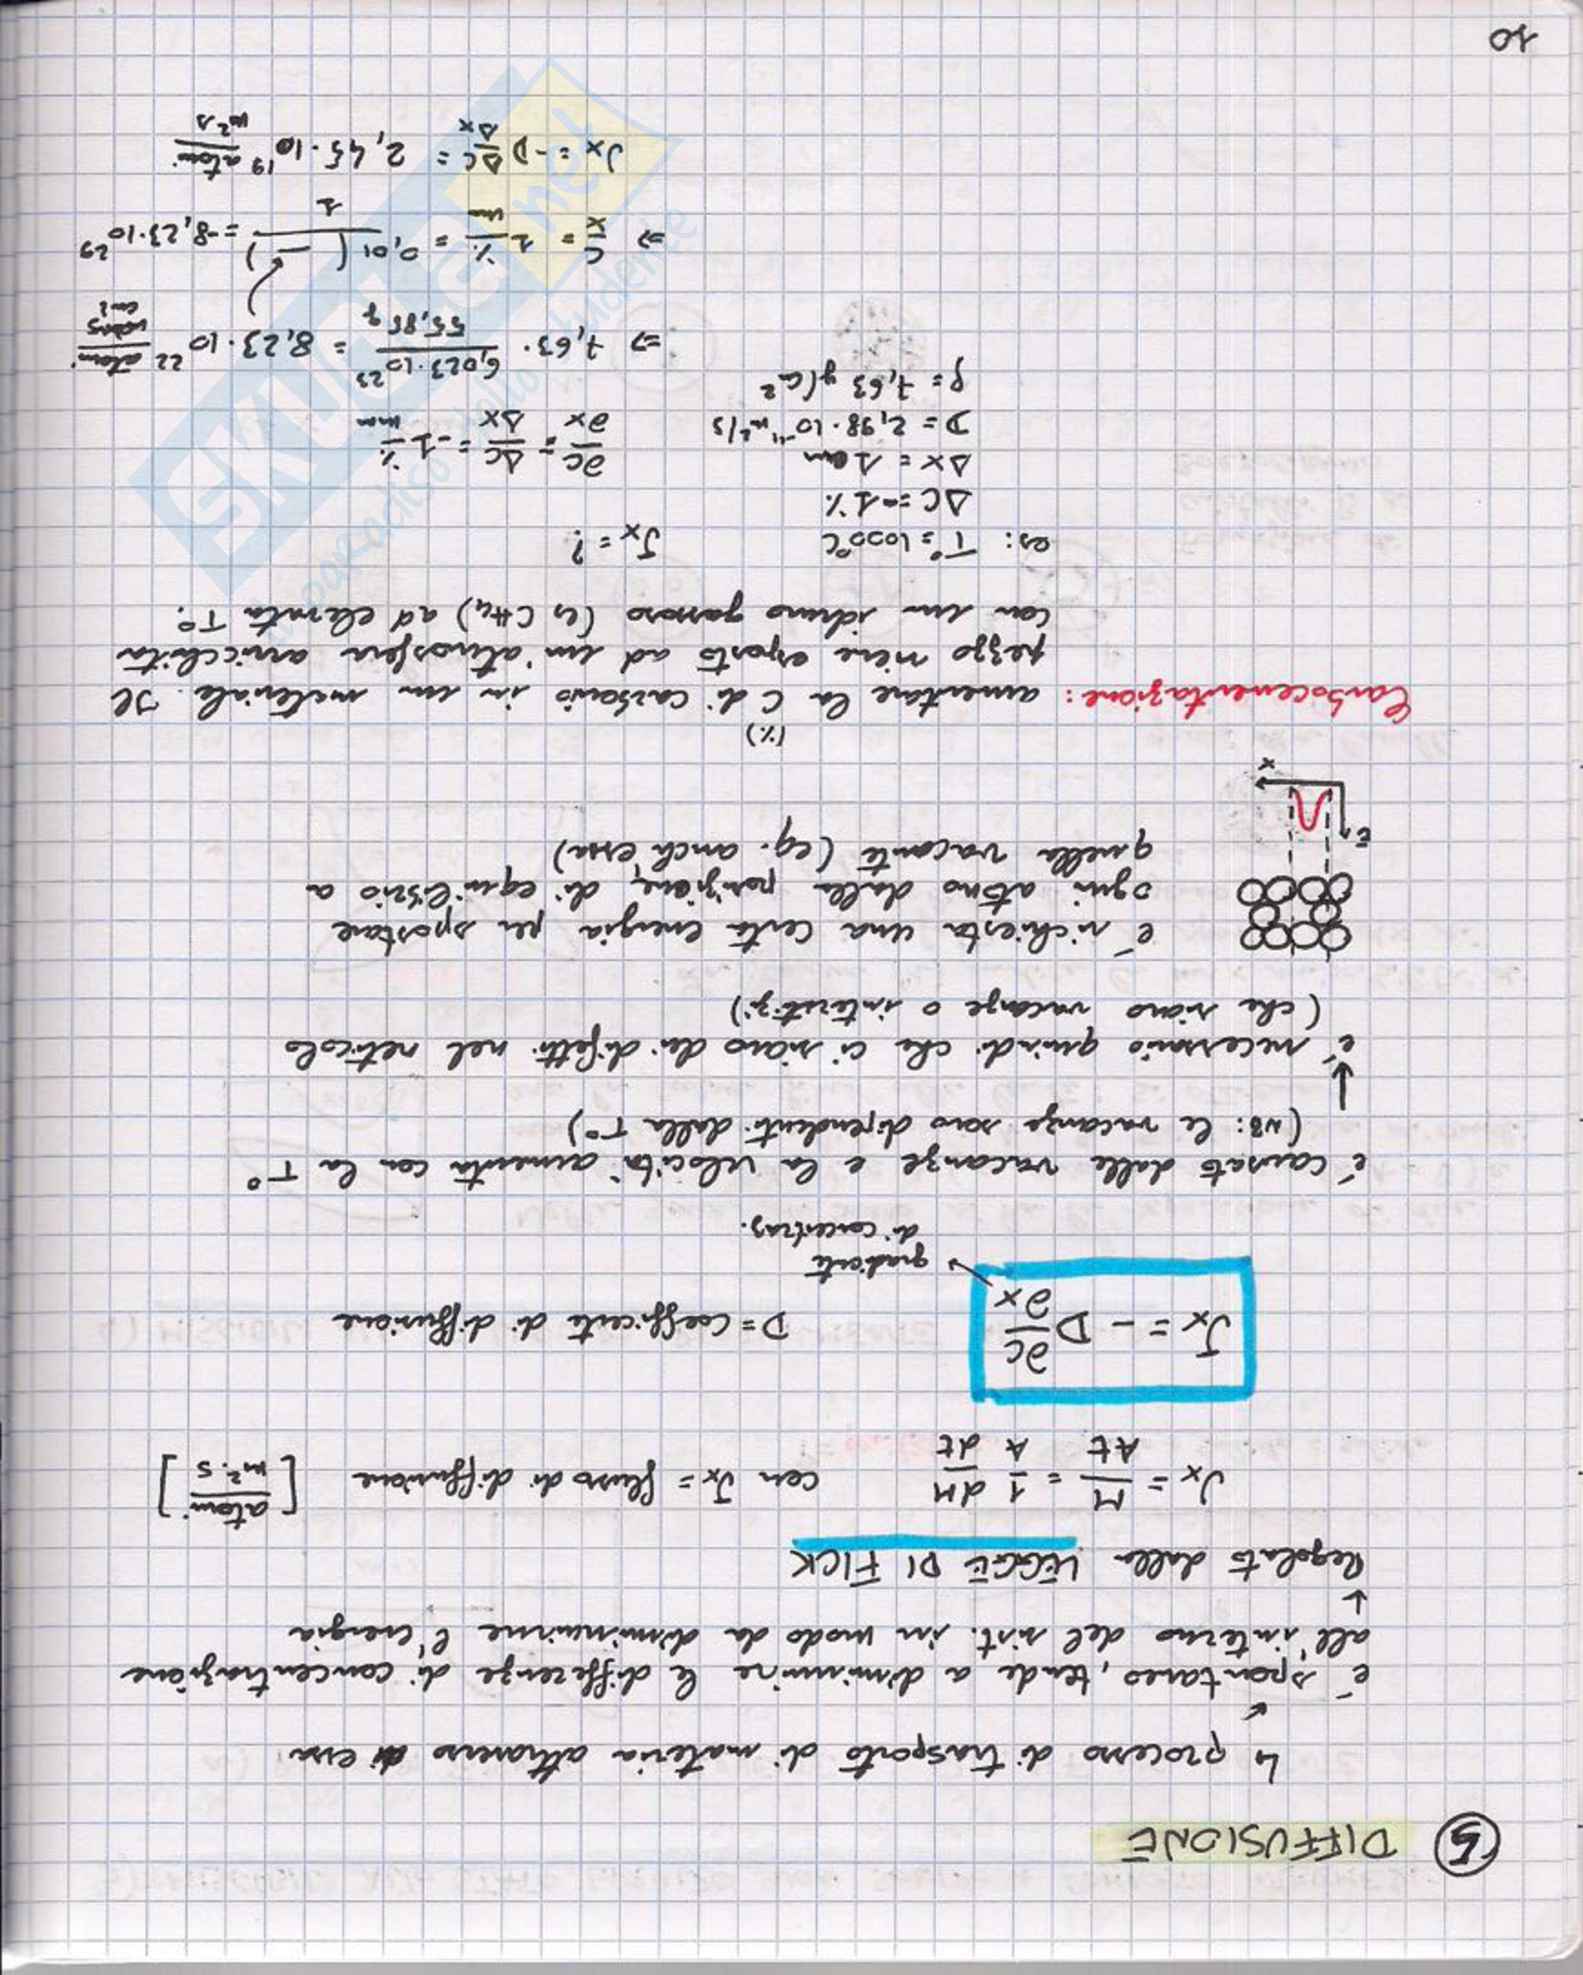 5 DIFFUSIONE
↳ processo di trasporto di materia attraverso di essa
è spontaneo, tende a diminuire le differenze di concentrazione
all'interno del sist. in modo da diminuirne l'energia
↓
Regolato dalla LEGGE DI FICK
Jx = M/At = 1/A dM/dt con Jx = flusso di diffusione [atomi/m²·s]
Jx = - D ∂C/∂x D = Coefficiente di diffusione
gradiente
di concentraz.
è causato dalle vacanze e la velocità aumenta con la T°
(NB: le vacanze sono dipendenti dalla T°)
↓
è necessario quindi che ci siano dei difetti nel reticolo
(che siano vacanze o interstizi)
è richiesta una certa energia per spostare
ogni atomo dalla posizione di equilibrio a
quella vacante (eq. anch'essa)
E
x
(%)
Carbocementazione: aumentare la C di carbonio in un materiale. Il
pezzo viene esposto ad un'atmosfera arricchita
con un idruro gassoso (es CH₄) ad elevata T°.
es: T° = 1000°C Jx = ?
ΔC = -1%
Δx = 1 mm ∂C/∂x = ΔC/Δx = -1 %/mm
D = 2,98·10⁻¹¹ m²/s
ρ = 7,63 g/cm³ => 7,63 · 6,023·10²³/55,85 g = 8,23·10²² atomi/cm³
=> C/x = 1 %/mm = 0,01 ( — )/1 = -8,23·10²⁹
Jx = -D ΔC/Δx = 2,45·10¹⁹ atomi/m² s
10
SKUOLA.net
paradiso dello studente